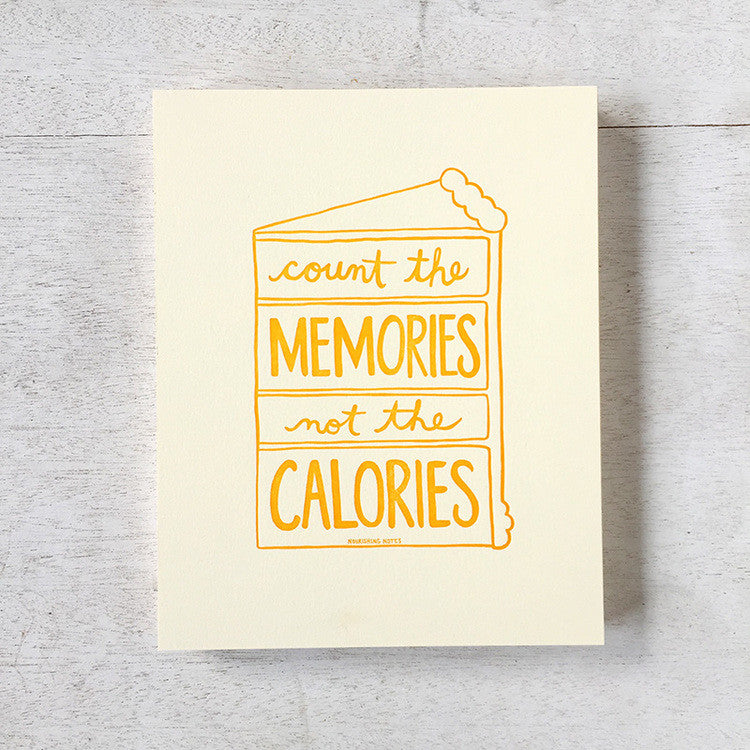 count the
MEMORIES
not the
CALORIES
NOURISHING NOTES